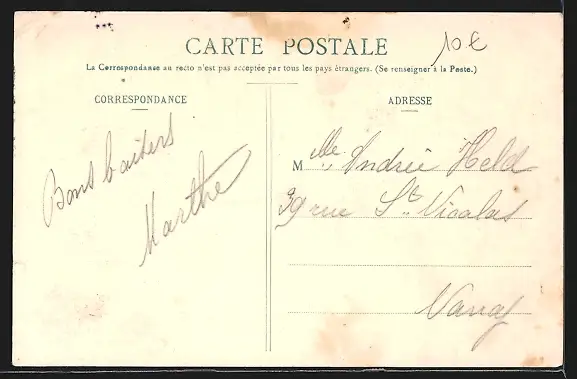 CARTE POSTALE
10 €
La Correspondance au recto n'est pas acceptée par tous les pays étrangers. (Se renseigner à la Poste.)
CORRESPONDANCE
Bons baisers
Marthe
ADRESSE
M lle Andrée Held
39 rue St Nicolas
Nancy